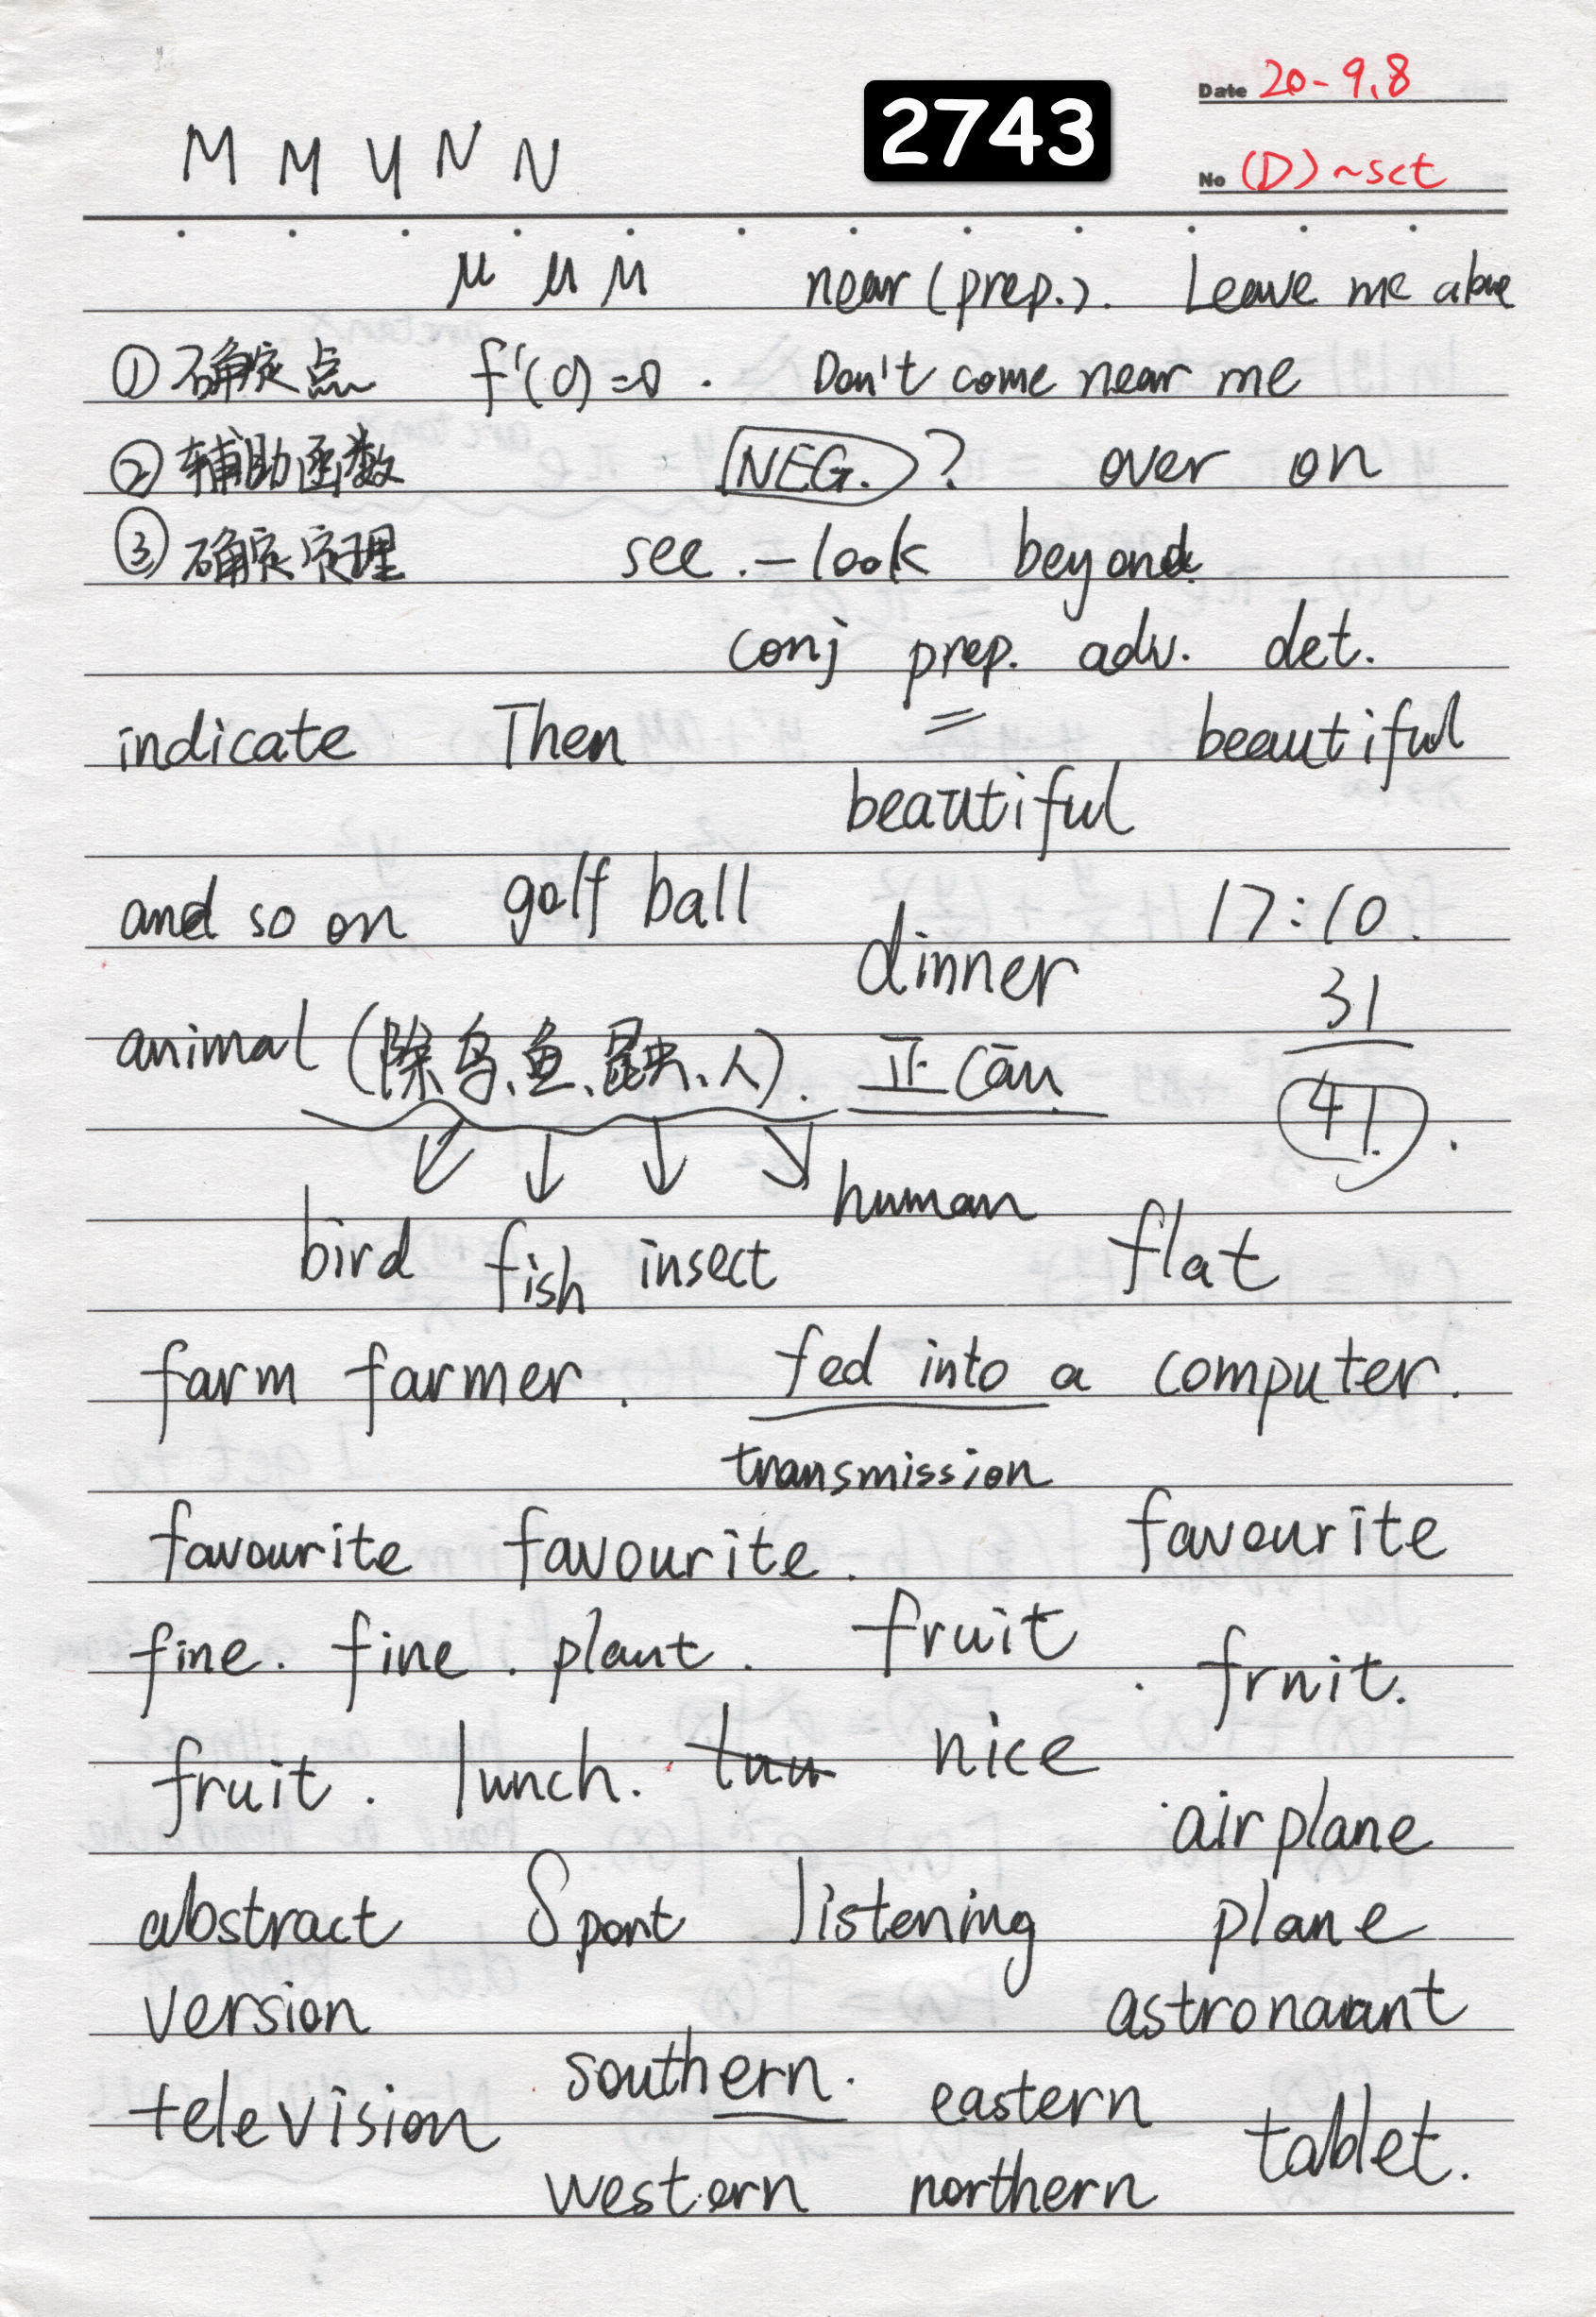 2743
Date 20-9.8
M M Y N N
No (D)~sct
μ μ M near (prep.). Leave me alone
①确定点 f'(c)=0. Don't come near me
②辅助函数 NEG. ? over on
③确定定理 see.—look beyond
conj prep. adv. det.
indicate Then beautiful
beautiful
and so on golf ball 17:10.
dinner
31
animal (除鸟、鱼、昆虫、人). 正Cān
41.
human
bird fish insect flat
farm farmer. fed into a computer.
transmission
favourite favourite. favourite
fine. fine. plant. fruit. fruit.
fruit. lunch. nice
airplane
abstract Sport listening plane
version astronaut
southern. eastern
television tablet.
western northern